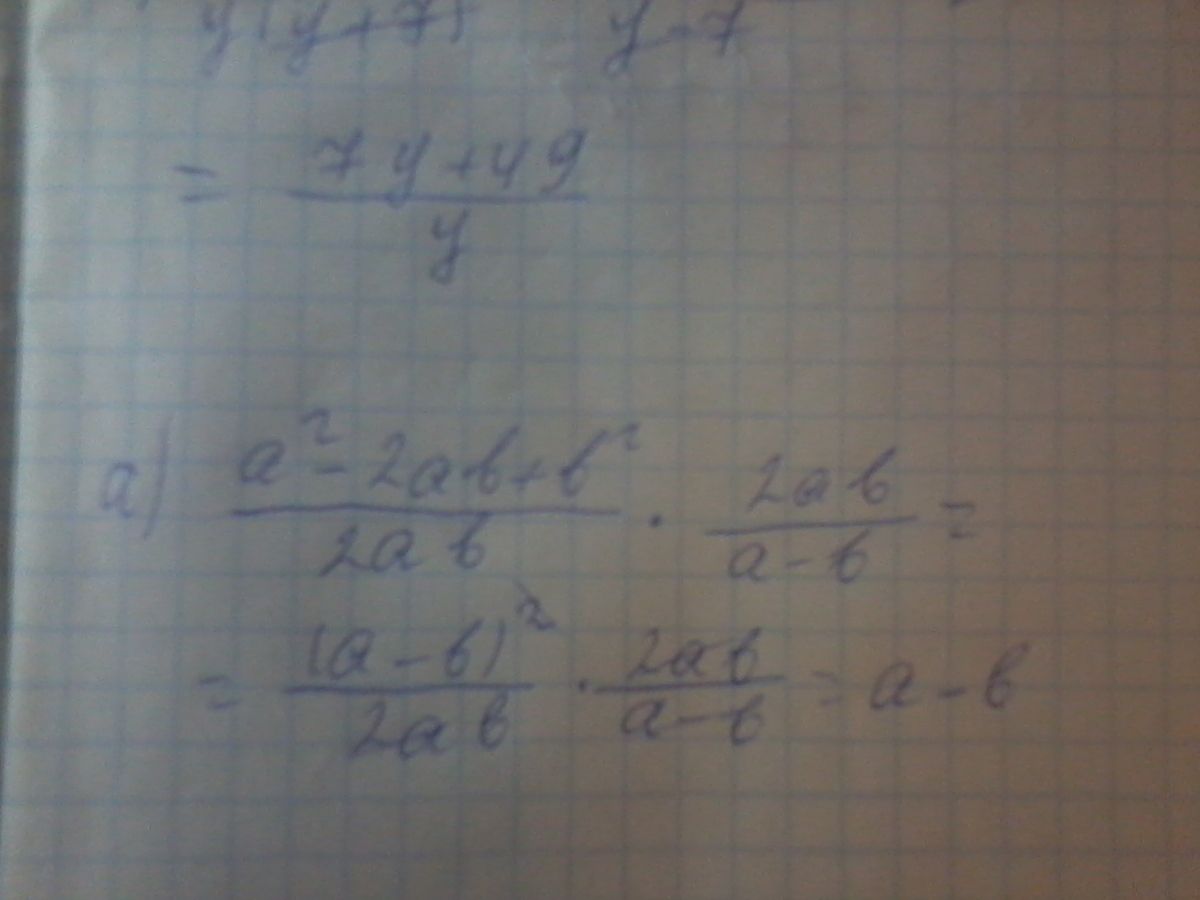 y(y+7) y-7
= 7y+49
y
a) a²-2ab+b² · 2ab =
2ab a-b
= (a-b)² · 2ab = a-b
2ab a-b